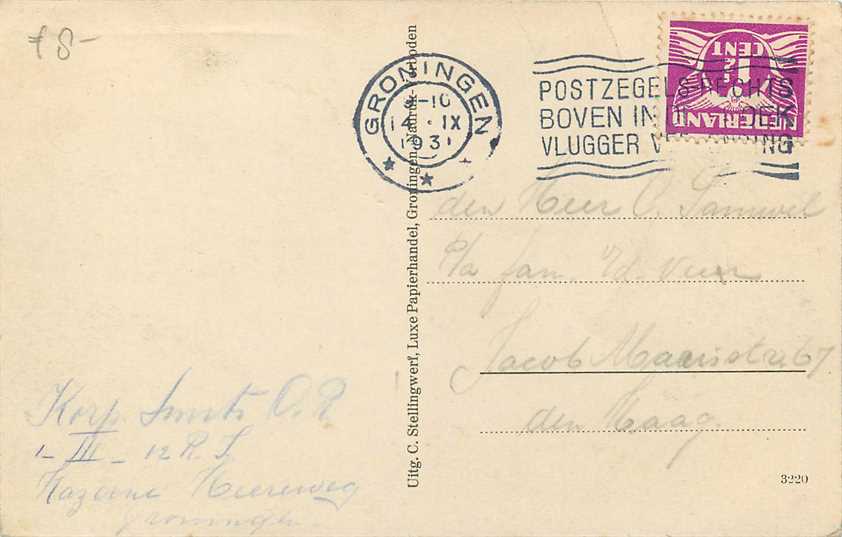 f 8-
GRONINGEN
9-10
14 · IX
1931
POSTZEGELS RECHTS
BOVEN IN DE HOEK
VLUGGER VERZENDING
1½
CENT
NEDERLAND
Uitg. C. Stellingwerf, Luxe Papierhandel, Groningen. Nadruk verboden
den Heer O. Samuel
p/a fam. v/d. Veen
Jacob Marisstr. 67
den Haag.
Korp. Smits O.R
1-III-12 R.I.
Kazerne Heereweg
Groningen.
3220